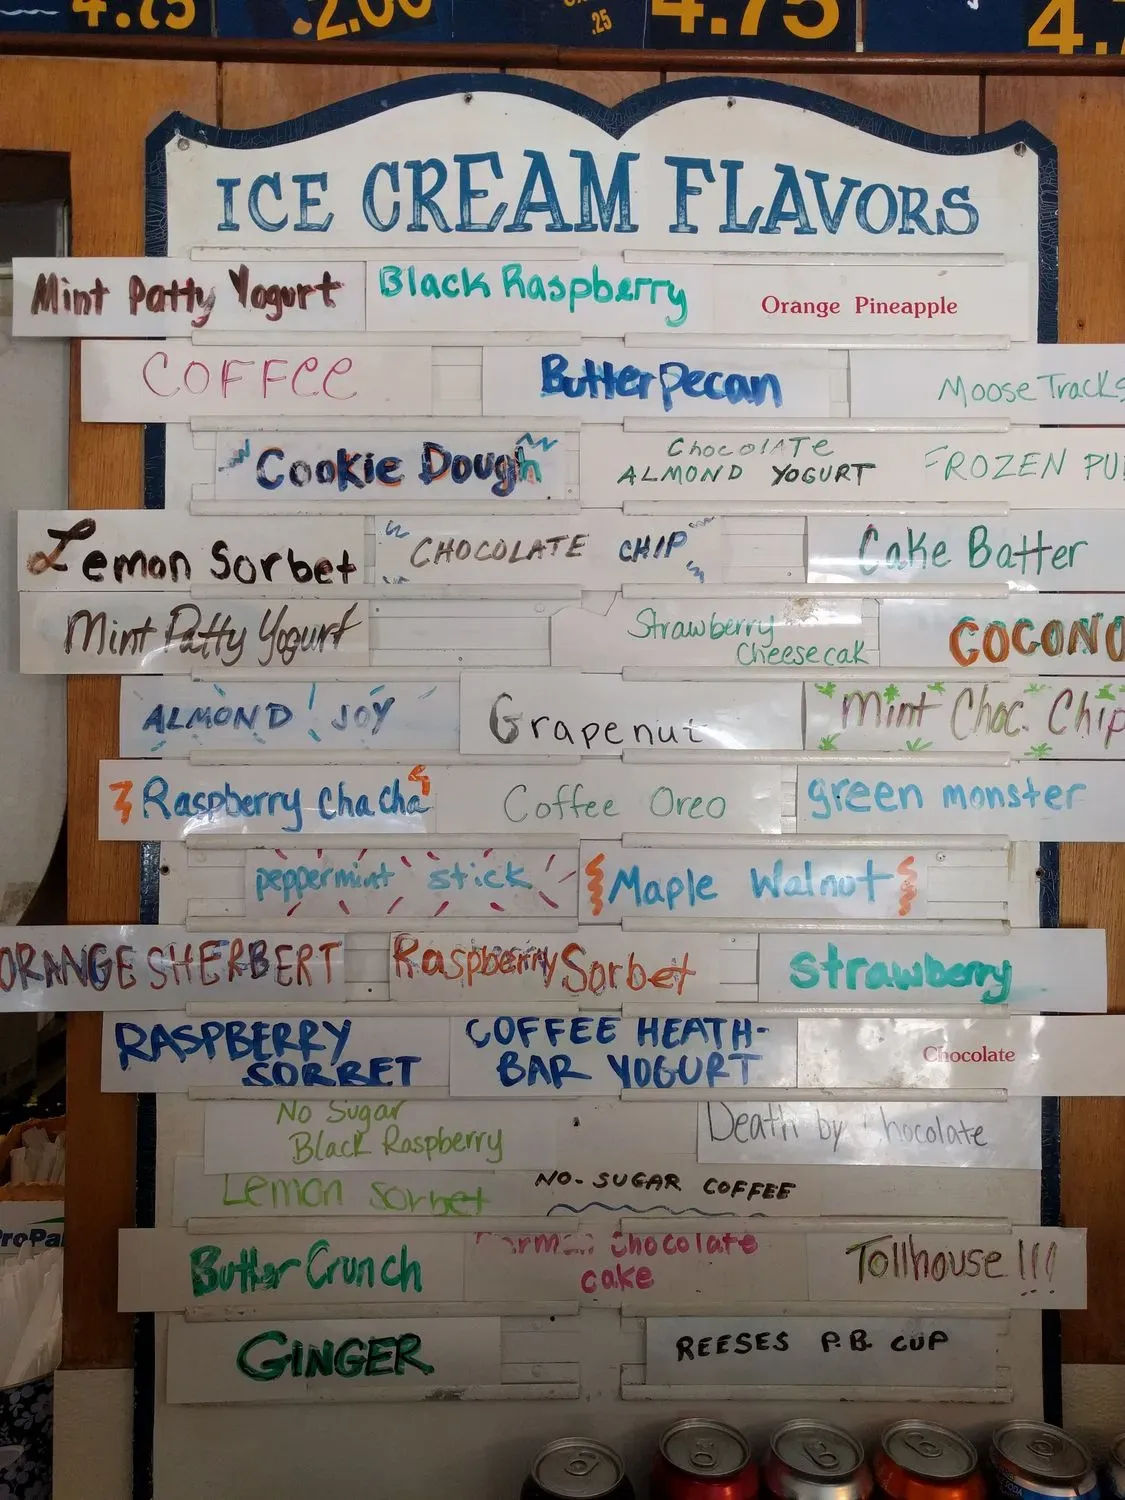 4.75 2.00 .25 4.75
ICE CREAM FLAVORS
Mint Patty Yogurt Black Raspberry Orange Pineapple
COFFEE Butter pecan Moose Tracks
Cookie Dough Chocolate ALMOND YOGURT FROZEN PU
Lemon Sorbet CHOCOLATE CHIP Cake Batter
Mint Patty Yogurt Strawberry Cheesecak COCONU
ALMOND JOY Grapenut Mint Choc. Chip
Raspberry cha cha Coffee Oreo green monster
peppermint stick Maple Walnut
ORANGE SHERBERT Raspberry Sorbet Strawberry
RASPBERRY SORBET COFFEE HEATH-BAR YOGURT Chocolate
No Sugar Black Raspberry Death by Chocolate
Lemon sorbet NO-SUGAR COFFEE
ButterCrunch chocolate cake Tollhouse !!!
GINGER REESES P.B. CUP